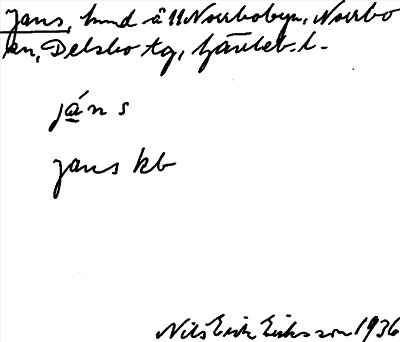 Jans, hmd å 11 Norrbobyn, Norrbo
sn, Delsbo tg, Gävleb. l.
já̱ns
jans kb
Nils Erik Eriksson 1936